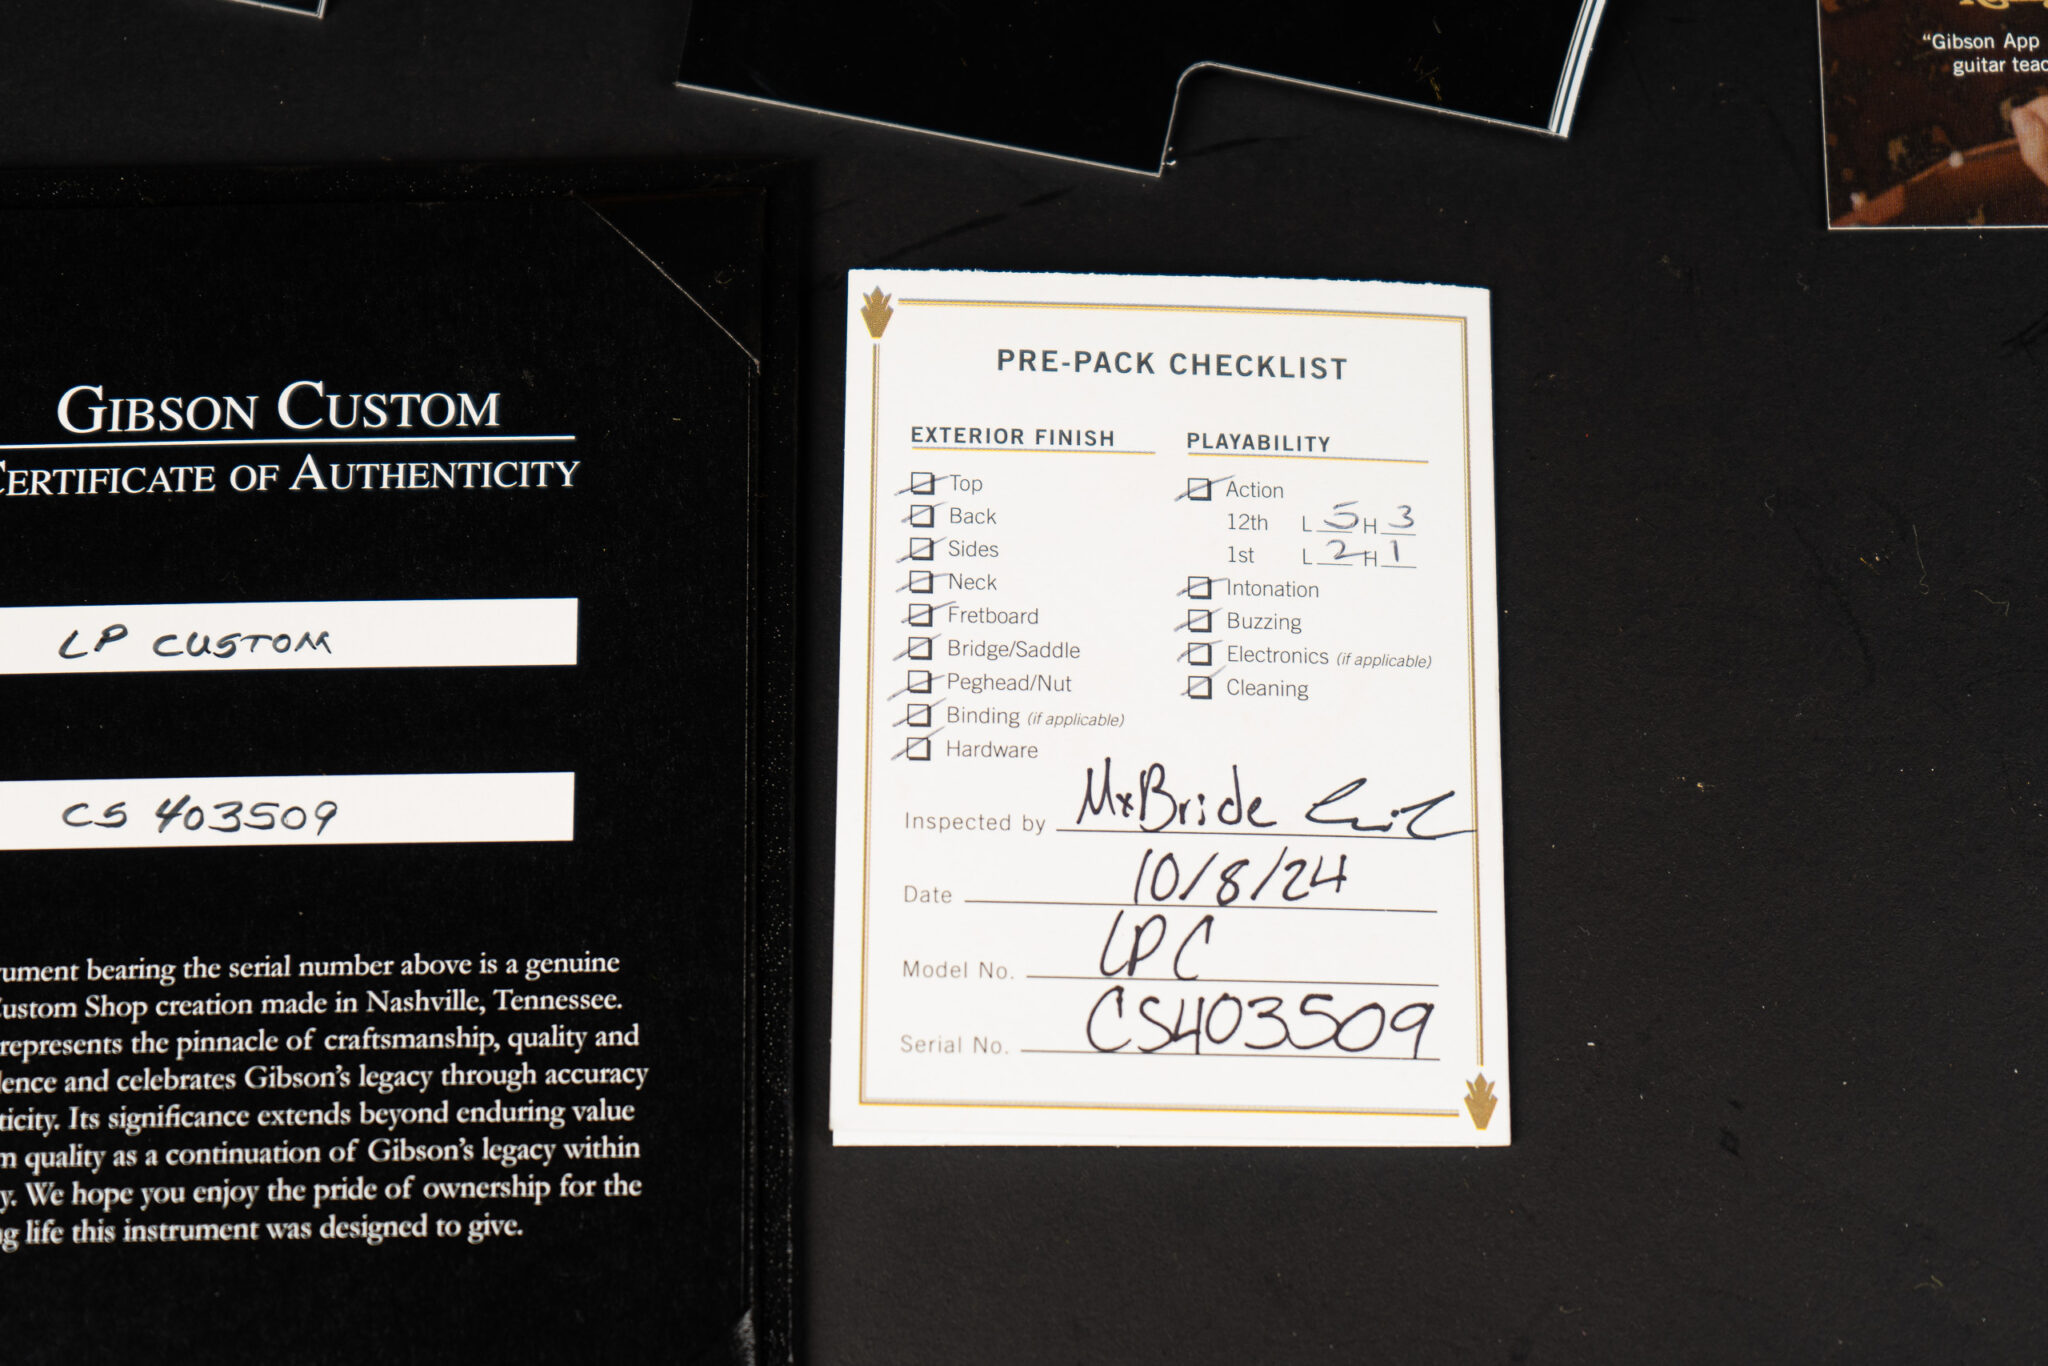 "Gibson App
guitar
GIBSON CUSTOM
CERTIFICATE OF AUTHENTICITY
LP CUSTOM
CS 403509
bearing the serial number above is a genuine
Custom Shop creation made in Nashville, Tennessee.
represents the pinnacle of craftsmanship, quality and
and celebrates Gibson's legacy through accuracy
Its significance extends beyond enduring value
quality as a continuation of Gibson's legacy within
We hope you enjoy the pride of ownership for the
life this instrument was designed to give.
PRE-PACK CHECKLIST
EXTERIOR FINISH
Top
Back
Sides
Neck
Fretboard
Bridge/Saddle
Peghead/Nut
Binding (if applicable)
Hardware
PLAYABILITY
Action
12th L 5 H 3
1st L 2 H 1
Intonation
Buzzing
Electronics (if applicable)
Cleaning
Inspected by McBride
Date 10/8/24
Model No. LPC
Serial No. CS403509